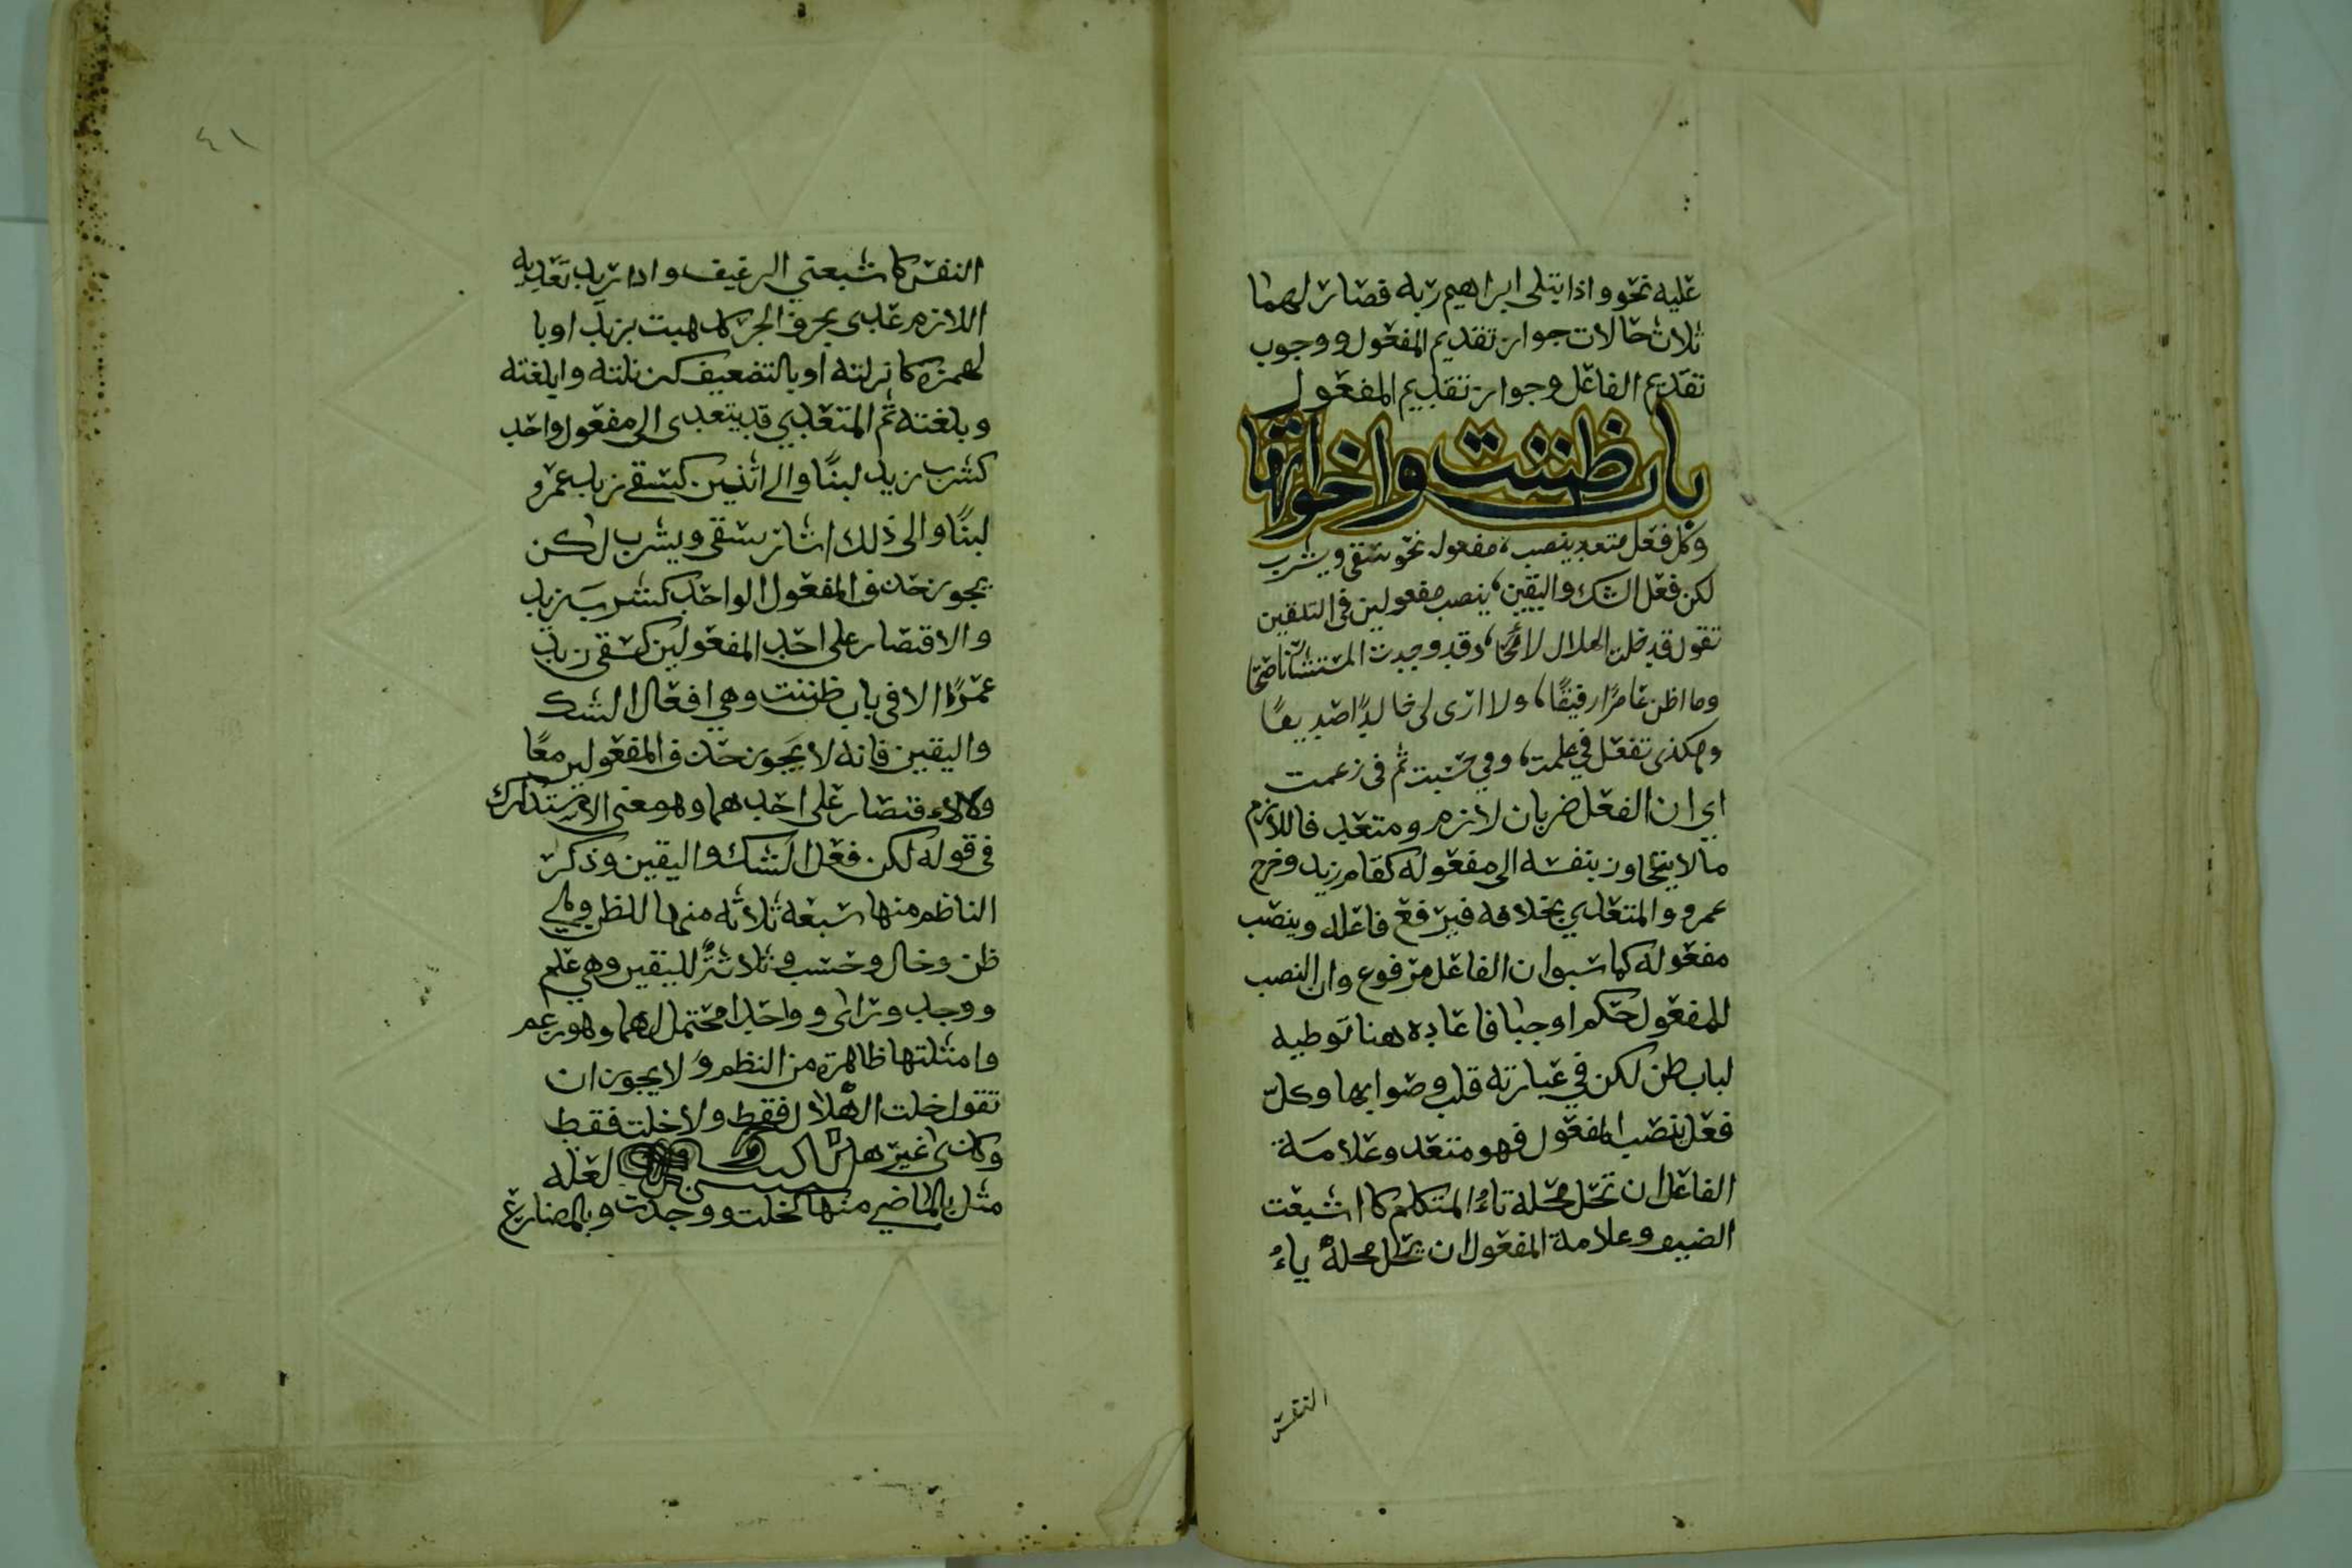 عليه نحو واذا بتلى ابراهيم ربه فصار لهما
ثلاث حالات جواز تقديم المفعول ووجوب
تقديم الفاعل وجواز تقديم المفعول
باب ظننت واخواتها
وكل فعل متعد ينصب، مفعوله نحو سقى ويشرب
لكن فعل الشك واليقين، ينصب مفعولين في التلقين
تقول قد خلت الهلال لائحًا، وقد وجدت المستشار ناصحًا
وما اظن عامرًا رفيقًا، ولا ارى لي خالدًا صديقًا
وهكذى تفعل في علمت، وفي حسبت ثم في زعمت
اي ان الفعل ضربان لازم ومتعد فاللازم
ما لا يتجاوز بنفسه الى مفعوله كقام زيد وخرج
عمرو والمتعدي بخلافه فيرفع فاعله وينصب
مفعوله كما سبوا ن الفاعل مرفوع وان النصب
للمفعول حكم اوجبا فاعاده هنا توطيه
لباب ظن لكن في عبارته قلب وصوابها وكل
فعل ينصب المفعول فهو متعد وعلامة
الفاعل ان تحل محله تاء المتكلم كا اشبعت
الضيو وعلامة المفعول ان يحل محله ياء
النفس
٤١
النفس كا شبعني الرغيف واذا تريد تعديه
اللازم عدى بحرف الجر كذهبت بزيد اوبا
لهمزه كا نزلته او بالتضعيف كنزلته وابلغته
وبلغته ثم المتعدي قد يتعدى الى مفعول واحد
كشرب زيد لبنًا والى اثنين كسقى زيد عمرو
لبنًا والى ذلك اشار بسقى ويشرب لكن
يجوز حذف المفعول الواحد كشرب زيد
والاقتصار على احد المفعولين كسقى زيد
عمرًا الا في باب ظننت وهي افعال الشك
واليقين فانه لا يجوز حذف المفعولين معًا
ولا الاقتصار على احدهما وهو معنى الاستدراك
في قوله لكن فعل الشك واليقين وذكر
الناظم منها سبعه ثلاثه منها للظن وهي
ظن وخال وحسب وثلاثة لليقين وهي علم
ووجد وراى وواحدا محتمل لهما وهو زعم
وامثلتها ظاهرة من النظم ولا يجوز ان
تقول خلت الهلال فقط ولا خلت فقط
وكذى غيرها لعله
مثل بالماضي منها كخلت ووجدت وبالمضارع